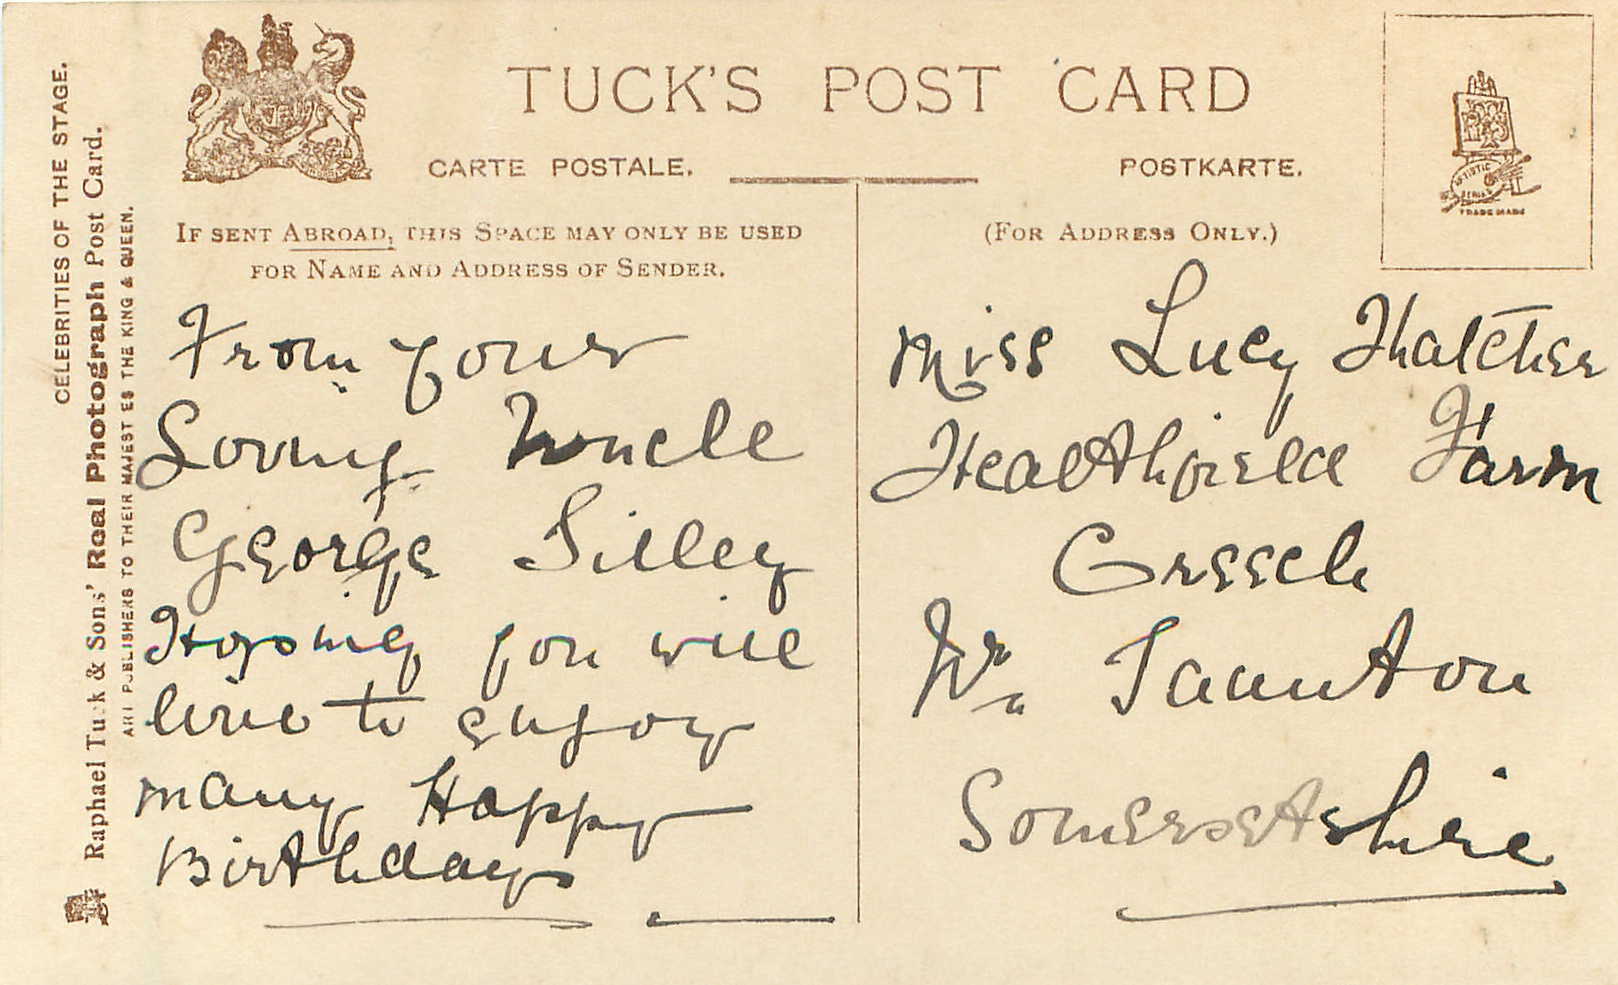 TUCK'S POST CARD
CARTE POSTALE.
POSTKARTE.
CELEBRITIES OF THE STAGE.
Raphael Tuck & Sons' Real Photograph Post Card.
ART PUBLISHERS TO THEIR MAJESTIES THE KING & QUEEN.
IF SENT ABROAD, THIS SPACE MAY ONLY BE USED
FOR NAME AND ADDRESS OF SENDER.
(FOR ADDRESS ONLY.)
ARTISTIC
SERIES
TRADE MARK
From your
Loving Uncle
George Silley
Hoping you will
live to enjoy
many Happy
Birthdays
Miss Lucy Thatcher
Heathfield Farm
Creech
Nr Taunton
Somersetshire